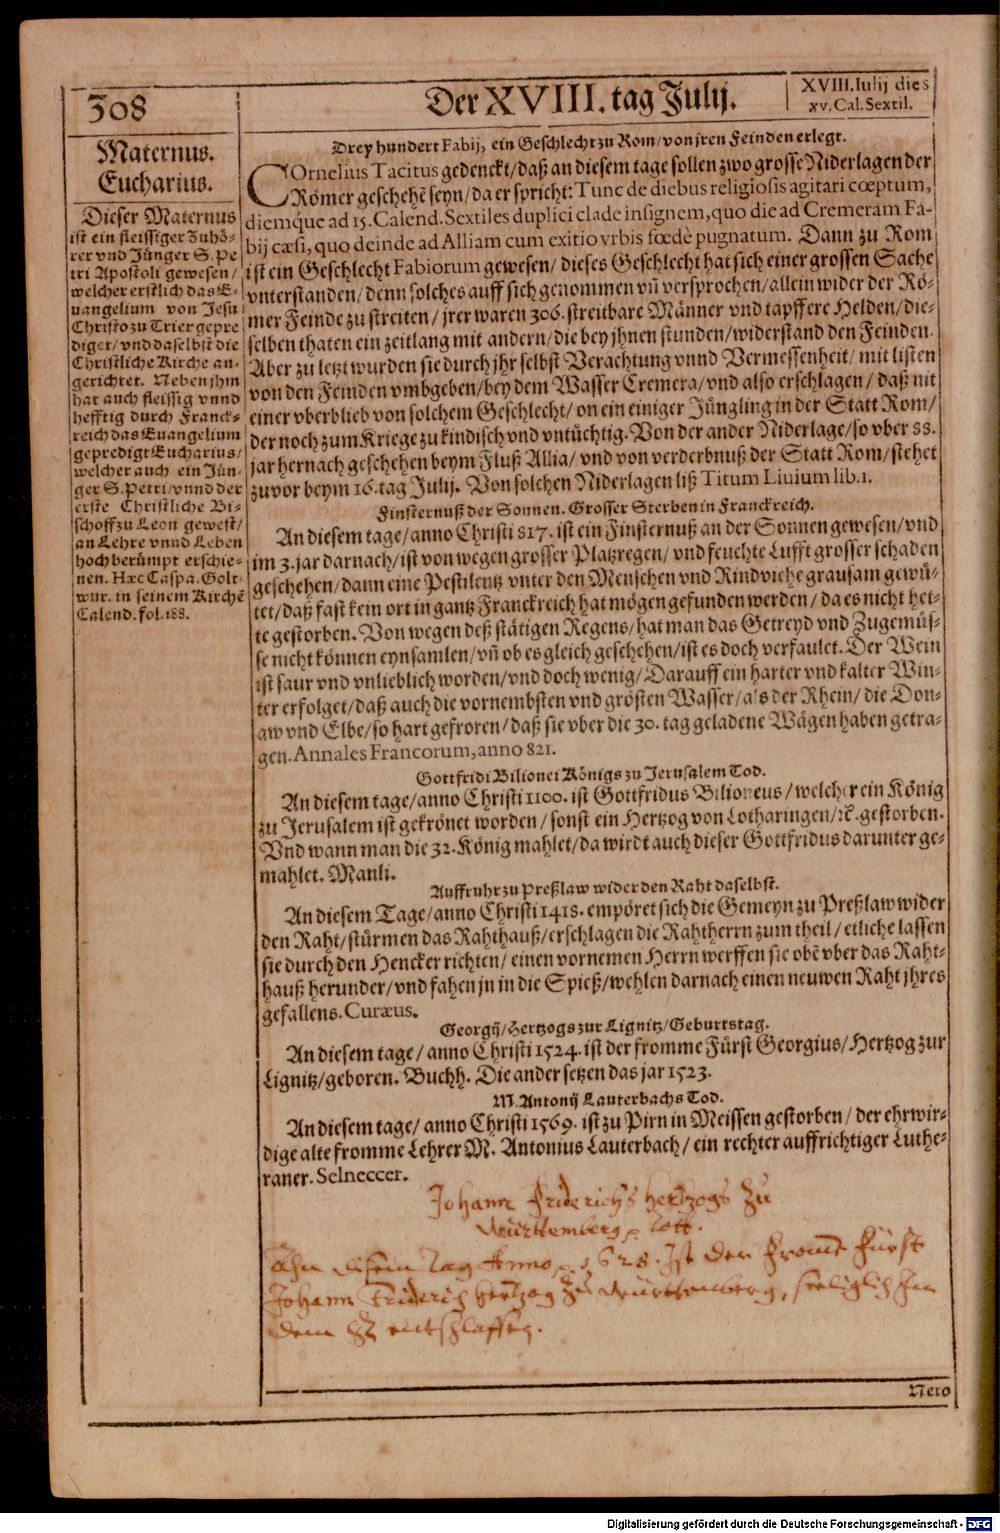 308
Der XVIII. tag Julij.
XVIII. Iulij dies
xv. Cal. Sextil.
Maternus.
Eucharius.
Dieser Maternus
ist ein fleissiger Zuhö-
rer vnd Jünger S. Pe
tri Apostoli gewesen /
welcher erstlich das E-
uangelium von Jesu
Christo zu Trier gepre
diget / vnd daselbst die
Christliche Kirche an-
gerichtet. Neben jhm
hat auch fleissig vnnd
hefftig durch Franck-
reich das Euangelium
gepredigt Eucharius /
welcher auch ein Jün-
ger S. Petri / vnnd der
erste Christliche Bi-
schoff zu Leon gewest /
an Lehre vnnd Leben
hochberümpt erschie-
nen. Hæc Caspa. Golt-
wur. in seinem Kirchẽ
Calend. fol. 188.
Drey hundert Fabij, ein Geschlecht zu Rom / von jren Feinden erlegt.
COrnelius Tacitus gedenckt / daß an diesem tage sollen zwo grosse Niderlagen der
Römer geschehẽ seyn / da er spricht: Tunc de diebus religiosis agitari cœptum,
diemq́ue ad 15. Calend. Sextiles duplici clade insignem, quo die ad Cremeram Fa-
bij cæsi, quo deinde ad Alliam cum exitio vrbis fœdè pugnatum. Dann zu Rom
ist ein Geschlecht Fabiorum gewesen / dieses Geschlecht hat sich einer grossen Sache
vnterstanden / denn solches auff sich genommen vñ versprochen / allein wider der Rö-
mer Feinde zu streiten / jrer waren 306. streitbare Männer vnd tapffere Helden / die-
selben thaten ein zeitlang mit andern / die bey jhnen stunden / widerstand den Feinden.
Aber zu letzt wurden sie durch jhr selbst Verachtung vnnd Vermessenheit / mit listen
von den Feinden vmbgeben / bey dem Wasser Cremera / vnd also erschlagen / daß nit
einer vberblieb von solchem Geschlecht / on ein einiger Jüngling in der Statt Rom /
der noch zum Kriege zu kindisch vnd vntüchtig. Von der ander Niderlage / so vber 88.
jar hernach geschehen beym Fluß Allia / vnd von verderbnuß der Statt Rom / stehet
zuvor beym 16. tag Julij. Von solchen Niderlagen liß Titum Liuium lib. 1.
Finsternuß der Sonnen. Grosser Sterben in Franckreich.
An diesem tage / anno Christi 817. ist ein Finsternuß an der Sonnen gewesen / vnd
im 3. jar darnach / ist von wegen grosser Platzregen / vnd feuchte Lufft grosser schaden
geschehen / dann eine Pestilentz vnter den Menschen vnd Rindviehe grausam gewü-
tet / daß fast kein ort in gantz Franckreich hat mögen gefunden werden / da es nicht het-
te gestorben. Von wegen deß stätigen Regens / hat man das Getreyd vnd Zugemüs-
se nicht können eynsamlen / vñ ob es gleich geschehen / ist es doch verfaulet. Der Wein
ist saur vnd vnlieblich worden / vnd doch wenig / Darauff ein harter vnd kalter Win-
ter erfolget / daß auch die vornembsten vnd grösten Wasser / als der Rhein / die Don-
aw vnd Elbe / so hart gefroren / daß sie vber die 30. tag geladene Wägen haben getra-
gen. Annales Francorum, anno 821.
Gottfridi Bilionei Königs zu Jerusalem Tod.
An diesem tage / anno Christi 1100. ist Gottfridus Bilioneus / welcher ein König
zu Jerusalem ist gekrönet worden / sonst ein Hertzog von Lotharingen / ꝛc. gestorben.
Vnd wann man die 32. König mahlet / da wirdt auch dieser Gottfridus darunter ge-
mahlet. Manli.
Auffruhr zu Preßlaw wider den Raht daselbst.
An diesem Tage / anno Christi 1418. empöret sich die Gemeyn zu Preßlaw wider
den Raht / stürmen das Rahthauß / erschlagen die Rahtherrn zum theil / etliche lassen
sie durch den Hencker richten / einen vornemen Herrn werffen sie obẽ vber das Raht-
hauß herunder / vnd fahen jn in die Spieß / wehlen darnach einen neuwen Raht jhres
gefallens. Curæus.
Georgij / Hertzogs zur Lignitz / Geburtstag.
An diesem tage / anno Christi 1524. ist der fromme Fürst Georgius / Hertzog zur
Lignitz / geboren. Buchh. Die ander setzen das jar 1523.
M. Antonij Lauterbachs Tod.
An diesem tage / anno Christi 1569. ist zu Pirn in Meissen gestorben / der ehrwir-
dige alte fromme Lehrer M. Antonius Lauterbach / ein rechter auffrichtiger Luthe-
raner. Selneccer.
Johann Friderichs Hertzogs Zu
Württemberg. Tott.
Ahn disem Tag Anno 1628. Ist der Fromme Fürst
Johann Friderich Hertzog Zu Württemberg, seeliglich In
dem entschlaffen.
Nero
Digitalisierung gefördert durch die Deutsche Forschungsgemeinschaft - DFG